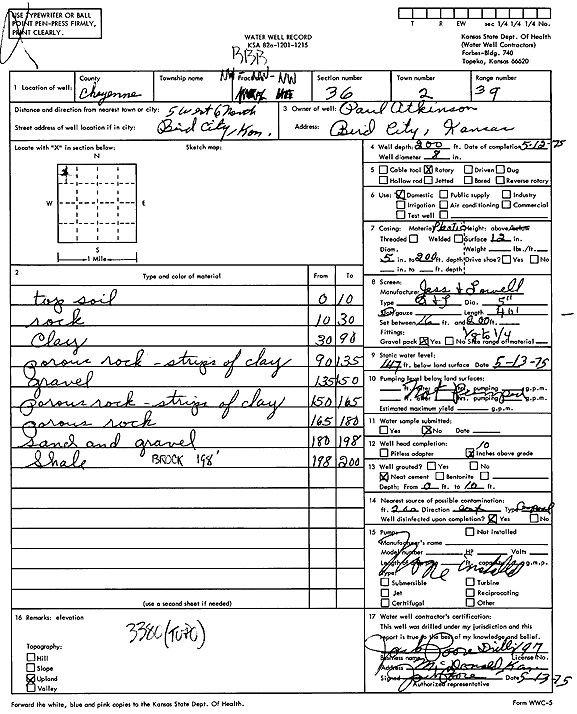 USE TYPEWRITER OR BALL
POINT PEN-PRESS FIRMLY,
PRINT CLEARLY.
WATER WELL RECORD
KSA 82a-1201-1215
T R EW sec 1/4 1/4 1/4 No.
Kansas State Dept. Of Health
(Water Well Contractors)
Forbes-Bldg. 740
Topeka, Kansas 66620
1 Location of well: County Township name Fraction Section number Town number Range number
Cheyenne NW NW-NW 36 2 39
Distance and direction from nearest town or city: 5 West 6 North
Street address of well location if in city: Bird City, Kan.
3 Owner of well: Paul Atkinson
Address: Bird City, Kansas
Locate with "X" in section below: Sketch map:
N
W E
S
1 Mile
4 Well depth: 200 ft. Date of completion 5-12-75
Well diameter 8 in.
5 Cable tool X Rotary Driven Dug
Hollow rod Jetted Bored Reverse rotary
6 Use: Domestic Public supply Industry
Irrigation Air conditioning Commercial
Test well
7 Casing: Material Plastic Height: above
Threaded Welded Surface 12 in.
Diam. Weight lbs./ft.
5 in. to 200 ft. depth Drive shoe? Yes No
in. to ft. depth
2 Type and color of material From To
top soil 0 10
rock 10 30
Clay 30 90
porous rock - strips of clay 90 135
gravel 135 150
porous rock - strips of clay 150 165
porous rock 165 180
sand and gravel 180 198
Shale BROCK 198' 198 200
(use a second sheet if needed)
8 Screen:
Manufacturer Jess & Lowell
Type Dia. 5"
gauze Length 40'
Set between ft. and 200 ft.
Fittings:
Gravel pack X Yes No Size range of material 1/8 to 1/4
9 Static water level:
147 ft. below land surface Date 5-13-75
10 Pumping level below land surfaces:
ft. after hrs. pumping g.p.m.
ft. after hrs. pumping g.p.m.
Estimated maximum yield g.p.m.
11 Water sample submitted:
Yes X No Date
12 Well head completion:
Pitless adapter X 10 Inches above grade
13 Well grouted? Yes No
X Neat cement Bentonite
Depth: From 0 ft. to 10 ft.
14 Nearest source of possible contamination:
ft. 200 Direction east Type
Well disinfected upon completion? X Yes No
15 Pump: Not installed
Manufacturer's name
Model number HP Volts
Length of ft. capacity g.m.p.
Type:
None Installed
Submersible Turbine
Jet Reciprocating
Certrifugal Other
16 Remarks: elevation
3380 (TOPO)
Topography:
Hill
Slope
X Upland
Valley
17 Water well contractor's certification:
This well was drilled under my jurisdiction and this
report is true to the best of my knowledge and belief.
Jack Poore Drillg 97
Business name License No.
Address McDonald Kan
Signed Jack Poore Date 5-13-75
Authorized representative
Forward the white, blue and pink copies to the Kansas State Dept. Of Health.
Form WWC-5